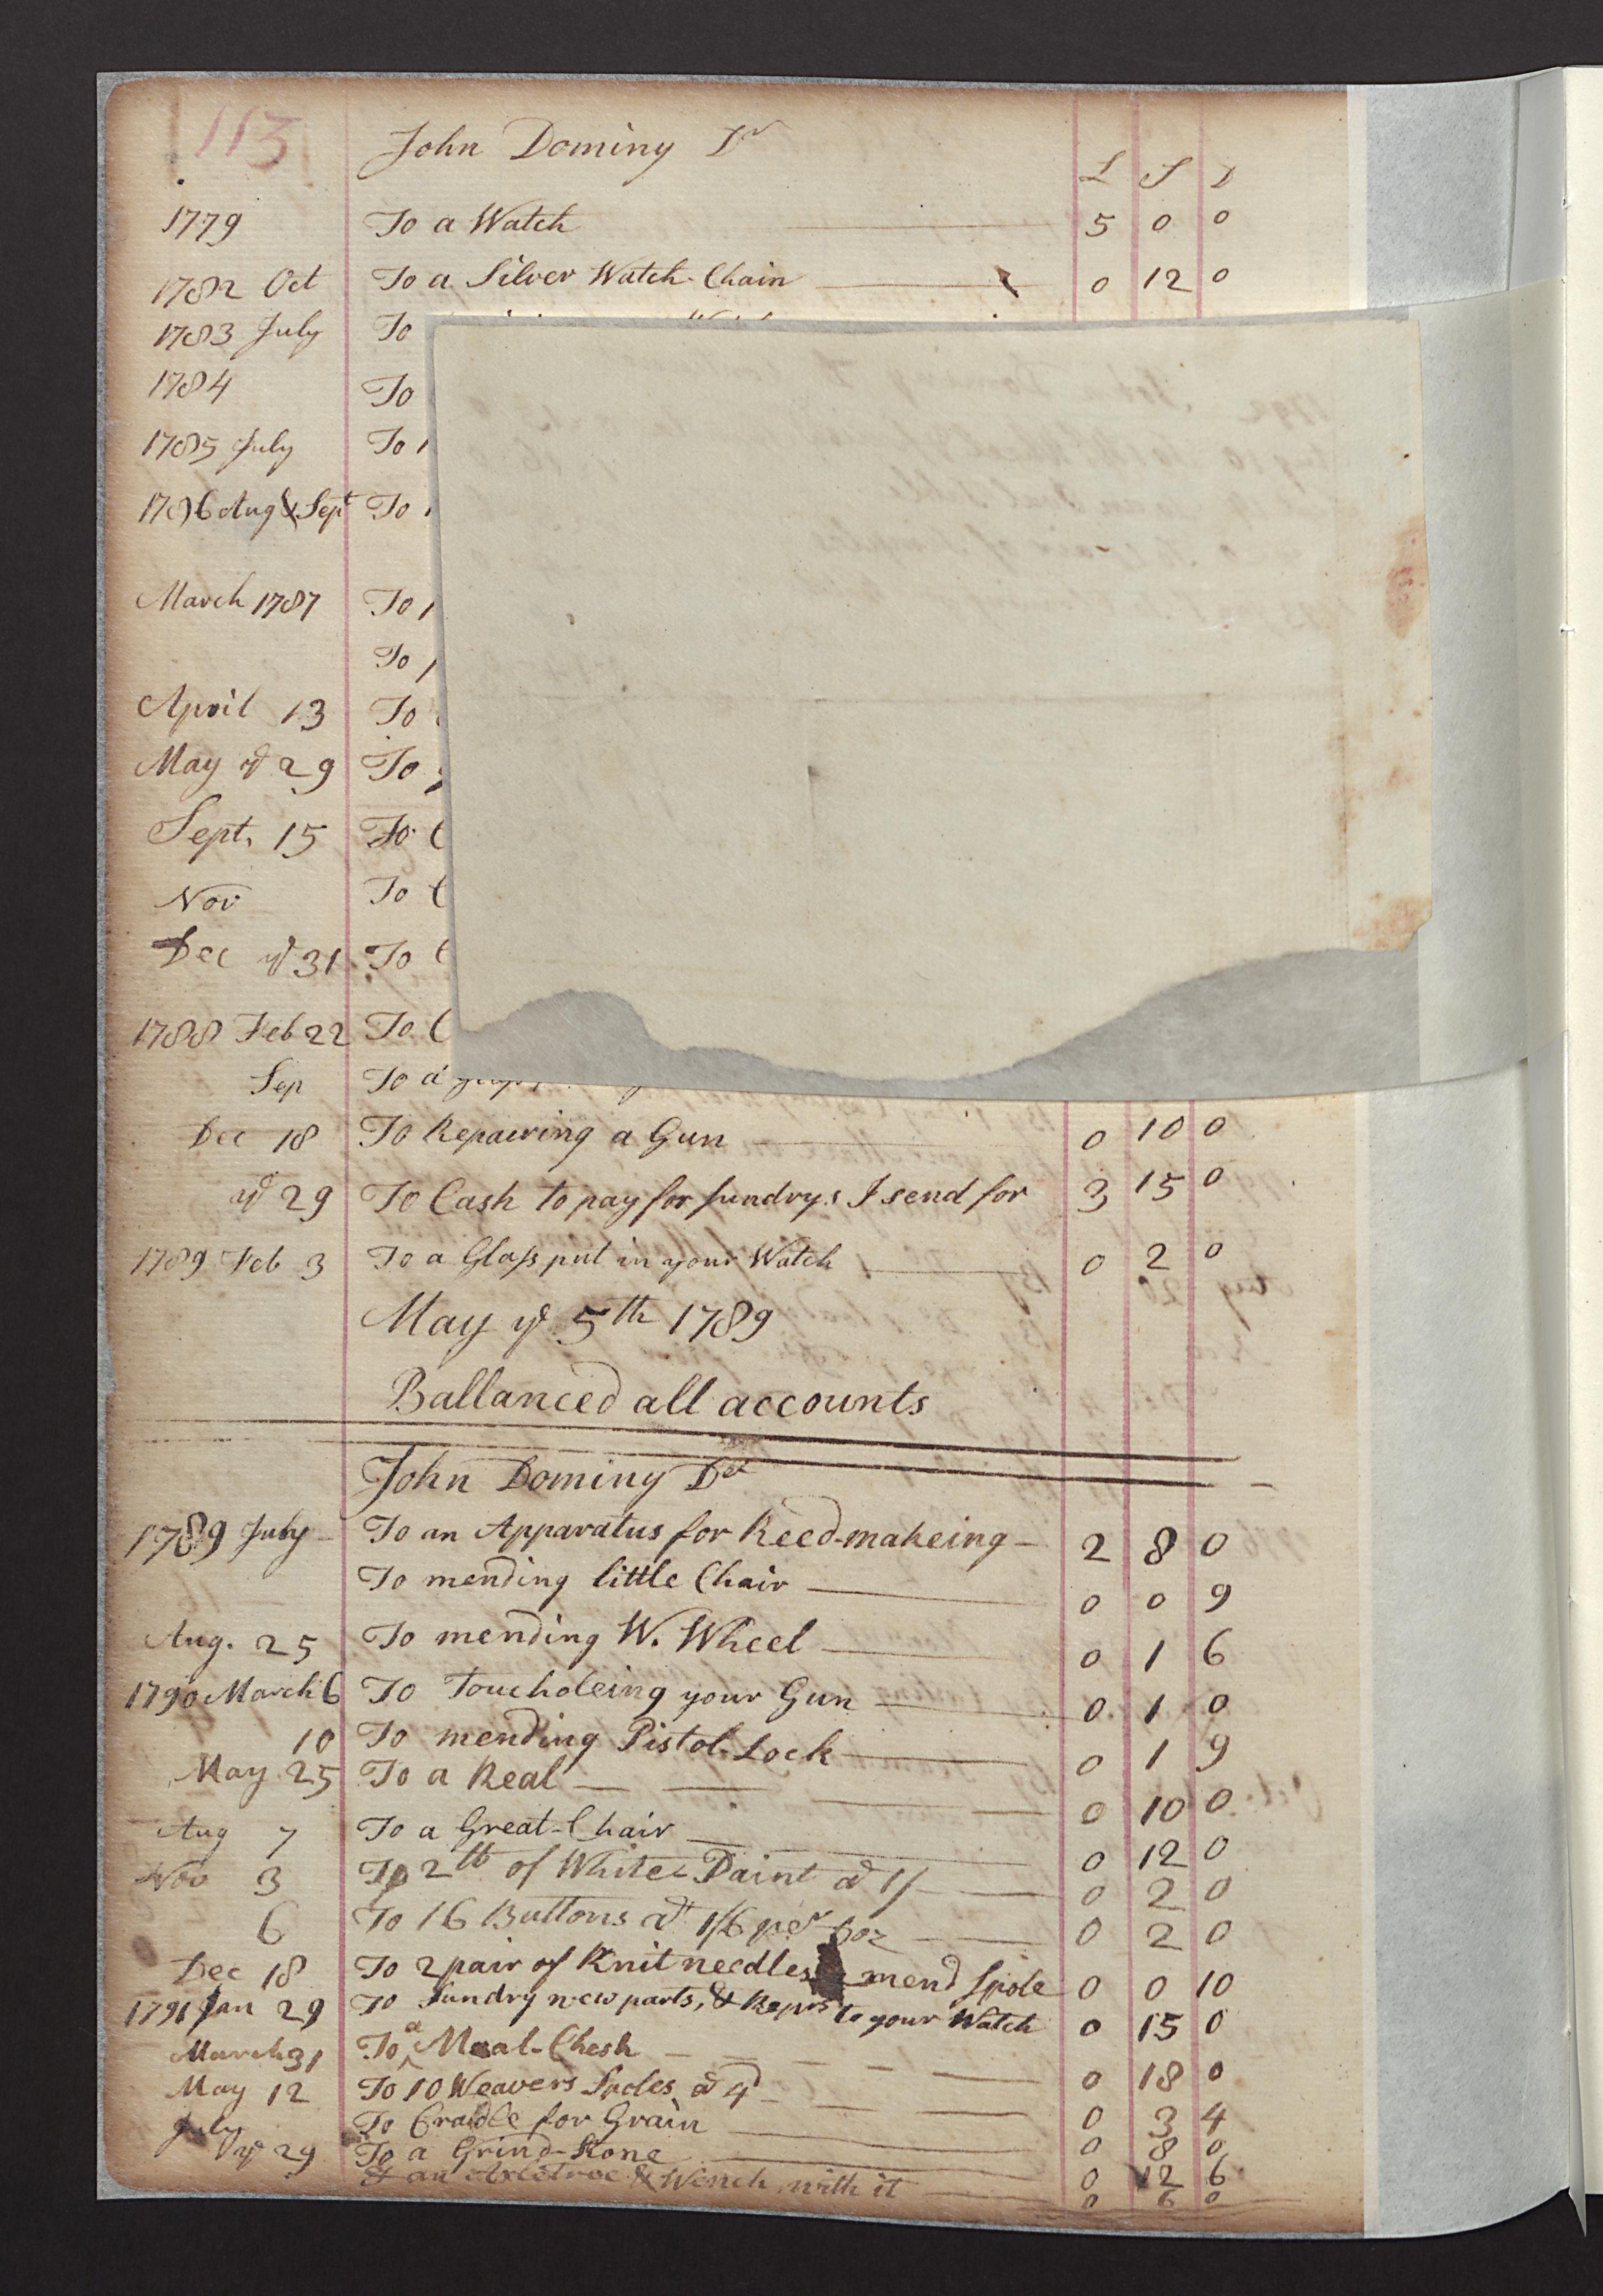 113
John Dominy Dr
L S D
1779 To a Watch 5 0 0
1782 Oct To a Silver Watch-Chain 0 12 0
1783 July To
1784 To
1785 July To
1786 Aug & Sept To
March 1787 To
To
April 13 To
May ye 29 To
Sept. 15 To
Nov To
Dec ye 31 To
1788 Feb 22 To
Sep To a
Dec 18 To Repairing a Gun 0 10 0
ye 29 To Cash to pay for sundrys I send for 3 15 0
1789 Feb 3 To a Glass put in your Watch 0 2 0
May ye 5th 1789
Ballanced all accounts
John Dominy Det
1789 July To an Apparatus for Reed-makeing 2 8 0
To mending little Chair 0 0 9
Aug. 25 To mending W. Wheel 0 1 6
1790 March 6 To Toucholeing your Gun 0 1 0
10 To mending Pistol-Lock 0 1 9
May 25 To a Real 0 10 0
Aug 7 To a Great-Chair 0 12 0
Nov 3 To 2 lb of White Paint at 1/ 0 2 0
6 To 16 Buttons at 1/6 per Doz 0 2 0
Dec 18 To 2 pair of Knit needles mend Spole 0 0 10
1791 Jan 29 To Sundry new parts, & Reprs to your Watch 0 15 0
March 31 To a Meal-Chesh 0 18 0
May 12 To 10 Weavers Spoles at 4d 0 3 4
July To Cradle for Grain 0 8 0
ye 29 To a Grind-Stone 0 12 6
& an Axletree & Wench with it 0 6 0